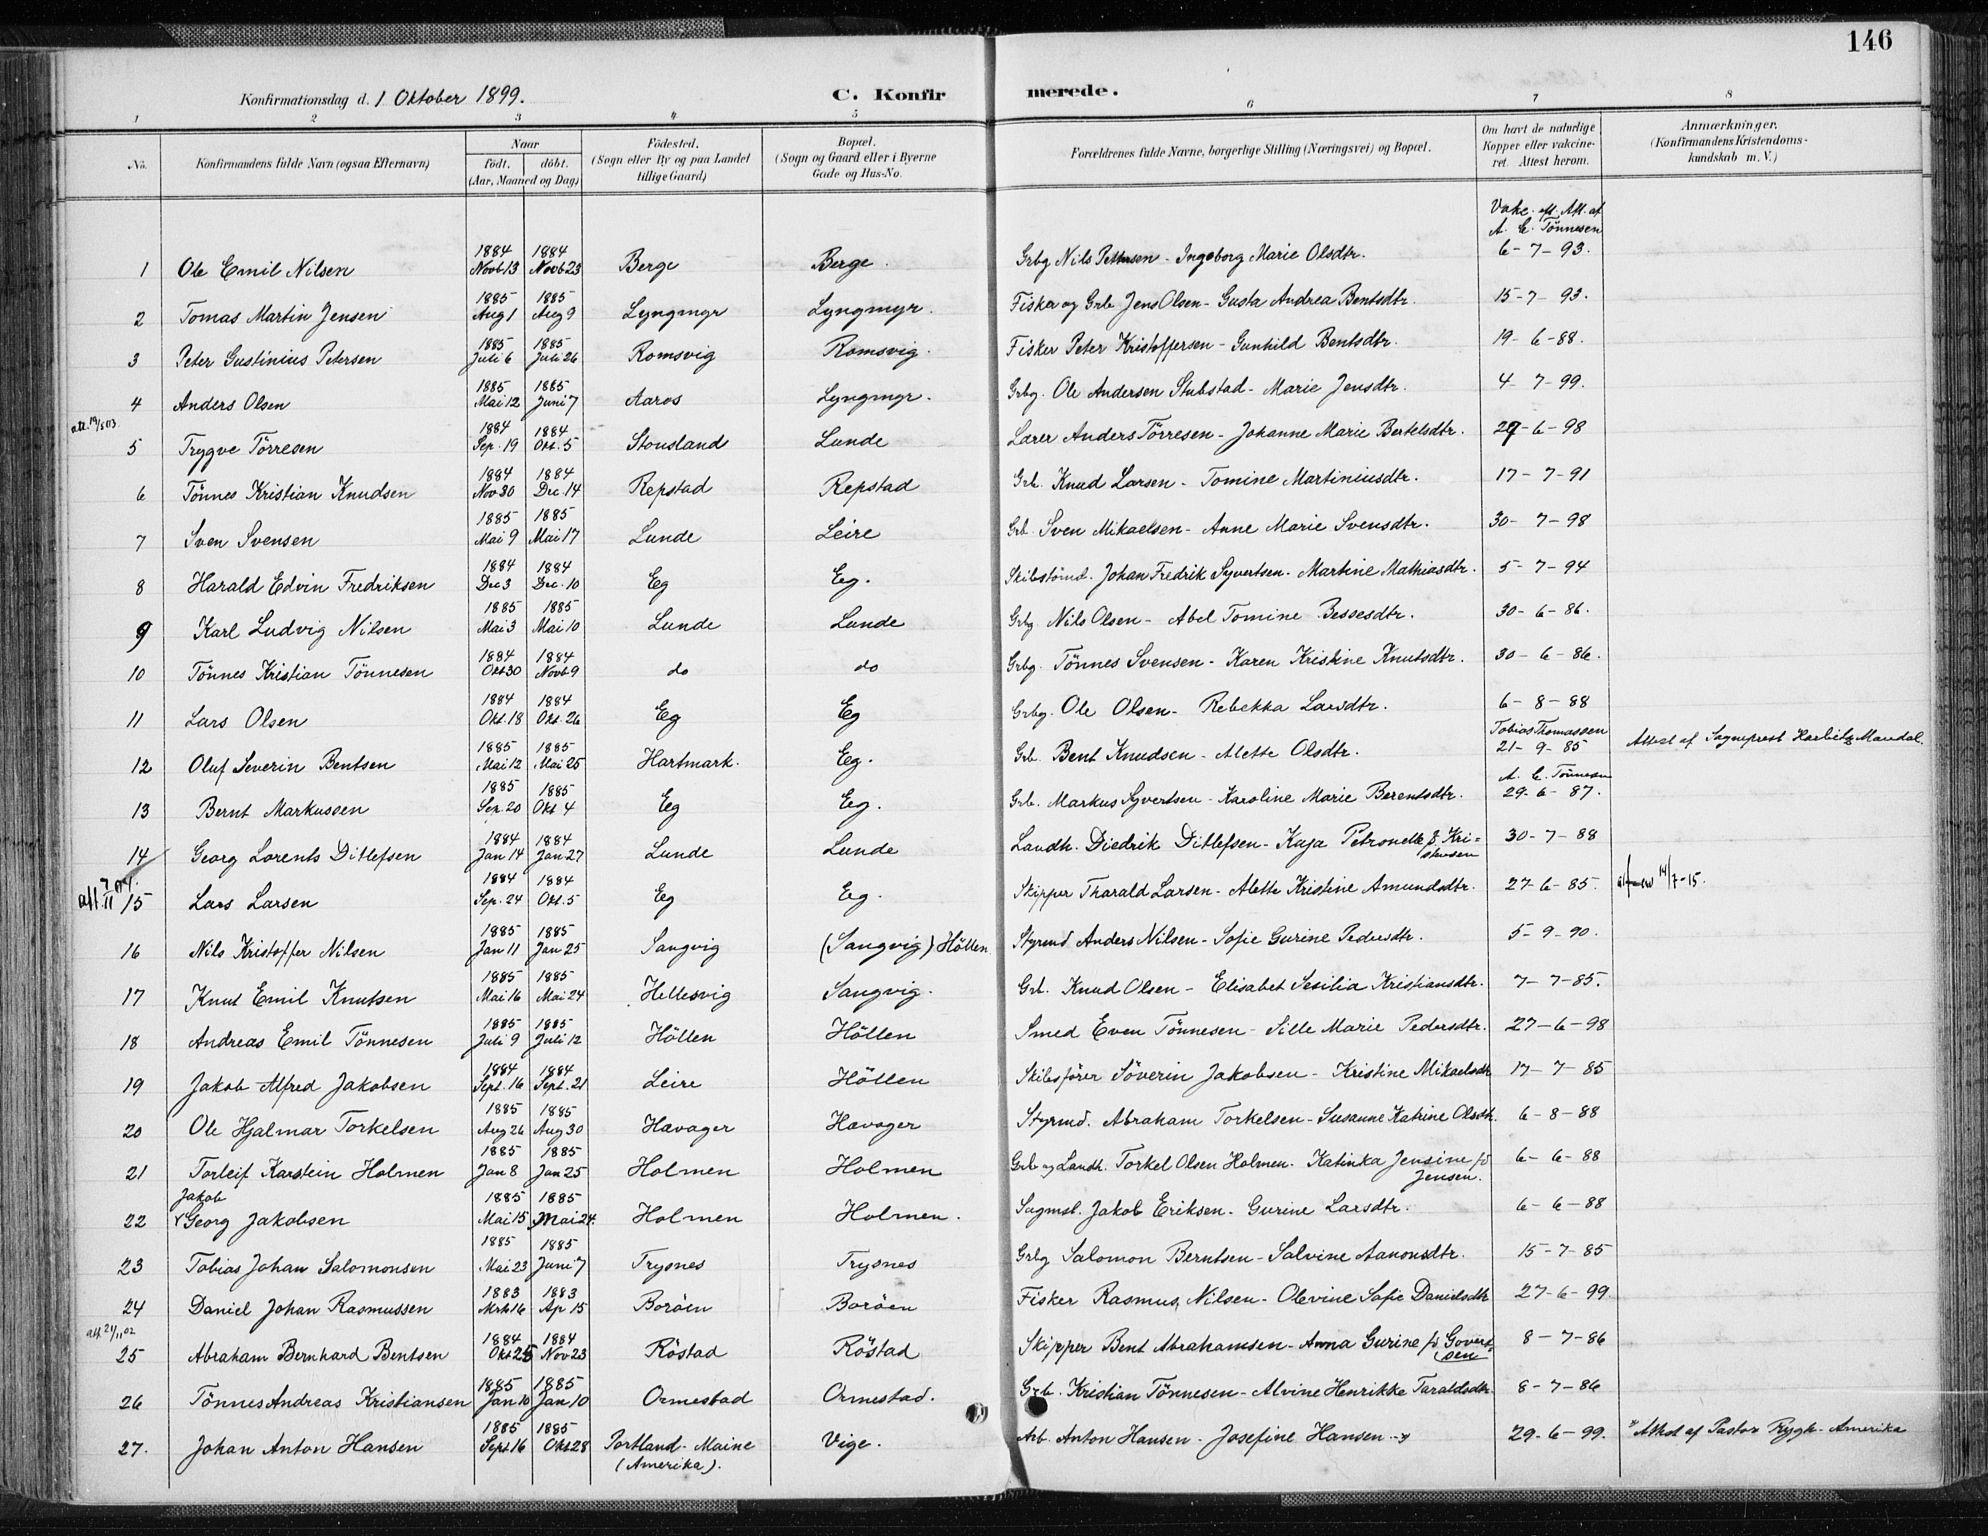 146
Konfirmationsdag d. 1 Oktober 1899.
C. Konfirmerede.
1 2 3 4 5 6 7 8
No. Konfirmandens fulde Navn (ogsaa Efternavn) Naar födt. döbt. (Aar, Maaned og Dag) Födested. (Sogn eller By og paa Landet tillige Gaard) Bopæl. (Sogn og Gaard eller i Byerne Gade og Hus-No. Forældrenes fulde Navne, borgerlige Stilling (Næringsvei) og Bopæl. Om havt de naturlige Kopper eller vakcineret. Attest herom. Anmærkninger. (Konfirmandens Kristendomskundskab m. V.)
Vakc. eft. Att. af A. C. Tönnesen
1 Ole Emil Nilsen 1884 Novb 13 1884 Novb 23 Berge Berge. Grbg Nils Pettersen - Ingeborg Marie Olsdtr. 6-7-93.
2 Tomas Martin Jensen 1885 Aug 1 1885 Aug 9 Lyngmyr Lyngmyr. Fisker og Grb. Jens Olsen - Gusta Andrea Bentsdtr. 15-7-93.
3 Peter Gustinius Petersen 1885 Juli 6 1885 Juli 26 Romsvig Romsvig. Fisker Peter Kristoffersen - Gunhild Bentsdtr. 19-6-88.
4 Anders Olsen 1885 Mai 12 1885 Juni 7 Aaros Lyngmyr. Grbg. Ole Andersen Stubstad - Marie Jensdtr. 4-7-99.
att. 19/5 03
5 Trygve Törresen 1884 Sep. 19 1884 Okt. 5 Stousland Lunde Lærer Anders Törresen - Johanne Marie Bertelsdtr. 29-6-98
6 Tönnes Kristian Knudsen 1884 Nov 30 1884 Dec. 14 Repstad Repstad Grb. Knud Larsen - Tomine Martiniusdtr. 17-7-91
7 Sven Svensen 1885 Mai 9 1885 Mai 17 Lunde Leire Grb. Sven Mikaelsen - Anne Marie Svensdtr. 30-7-98
8 Harald Edvin Fredriksen 1884 Dec 3 1884 Dec. 10 Eg Eg. Skibstömd. Johan Fredrik Syvertsen - Martine Mathiasdtr. 5-7-94
9 Karl Ludvig Nilsen 1885 Mai 3 1885 Mai 10 Lunde Lunde Grbg. Nils Olsen - Abel Tomine Bessesdtr. 30-6-86.
10 Tönnes Kristian Tönnesen 1884 Okt 30 1884 Novb 9 do do Grbg. Tönnes Svensen - Karen Kristine Knutsdtr. 30-6-86.
11 Lars Olsen 1884 Okt. 18 1884 Okt. 26 Eg Eg Grbg. Ole Olsen - Rebekka Larsdtr. 6-8-88
12 Oluf Severin Bentsen 1885 Mai 12 1885 Mai 25 Hartmark. Eg. Grb. Bent Knudsen - Alette Olsdtr. Tobias Thomassen 21-9-85 Attest af Sogneprest Harbitz Mandal.
13 Bernt Markussen 1885 Sep. 20 1885 Okt 4 Eg Eg. Grb. Markus Syvertsen - Karoline Marie Berentsdtr. A. C. Tönnesen 29-6-87.
14 Georg Lorents Ditlefsen 1884 Jan 14 1884 Jan 27 Lunde Lunde Landh. Diedrik Ditlefsen - Kaja Petronelle f. Kristensen 30-7-88
att. 7/11 04.
15 Lars Larsen 1884 Sep. 24 1884 Okt. 5 Eg Eg. Skipper Tharald Larsen - Alette Kristine Amundsdtr. 27-6-85. 14/7-15.
16 Nils Kristoffer Nilsen 1885 Jan 11 1885 Jan 25 Sangvig (Sangvig) Höllen Styrmd Anders Nilsen - Sofie Gurine Pedersdtr. 5-9-90.
17 Knut Emil Knutsen 1885 Mai 16 1885 Mai 24 Hellesvig Sangvig. Grb. Knud Olsen - Elisabet Sesilia Kristiansdtr. 7-7-85.
18 Andreas Emil Tönnesen 1885 Juli 9 1885 Juli 12 Höllen Höllen Smed Even Tönnesen - Sille Marie Pedersdtr. 27-6-98
19 Jakob Alfred Jakobsen 1884 Sept. 16 1884 Sept. 21 Leire Höllen Skibsförer Söverin Jakobsen - Kristine Mikaelsdtr 17-7-85
20 Ole Hjalmar Torkelsen 1885 Aug 26 1885 Aug 30 Havager Havager Styrmd. Abraham Torkelsen - Susanne Katrine Olsdtr. 6-8-88
21 Torleif Karstein Holmen 1885 Jan 8 1885 Jan 25 Holmen Holmen Grb og Landh. Torkel Olsen Holmen - Katinka Jensine fd Jensen. 6-6-88
22 Jakob Georg Jakobsen 1885 Mai 15 1885 Mai 24. Holmen Holmen. Sagmst. Jakob Eriksen - Gurine Larsdtr. 6-6-88
23 Tobias Johan Salomonsen 1885 Mai 23 1885 Juni 7 Trysnes Trysnes Grbg Salomon Berntsen - Salvine Aanonsdtr. 15-7-85
24 Daniel Johan Rasmussen 1883 Mrts 16 1883 Ap 15 Boröen Boröen Fisker Rasmus Nilsen - Olevine Sofie Danielsdtr 27-6-99.
att 21/11 02
25 Abraham Bernhard Bentsen 1884 Okt 25 1884 Nov 23 Röstad Röstad Skipper Bent Abrahamsen - Anna Gurine fd Govertsen 8-7-86
26 Tönnes Andreas Kristiansen 1885 Jan 10 1885 Jan 10 Ormestad Ormestad. Grb. Kristian Tönnesen - Alvine Henrikke Taraldsdtr. 8-7-86
27. Johan Anton Hansen 1885 Sept 16 1885 Okt 28 Portland - Maine (Amerika). Vige. Arb. Anton Hansen - Josefine Hansen 29-6-99. * Attest af Pastor Rygh - Amerika